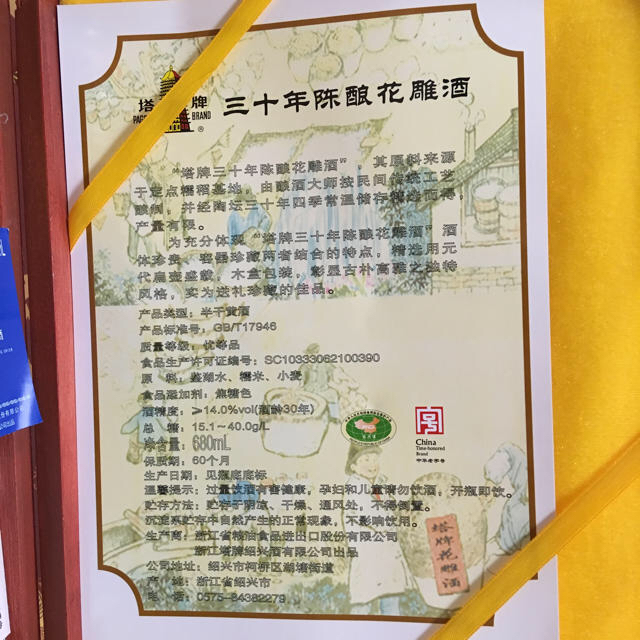 塔牌
三十年陈酿花雕酒
PAGODA BRAND
®
“塔牌三十年陈酿花雕酒”，其原料来源
于定点糯稻基地，由酿酒大师按民间传统工艺
酿制，并经陶坛三十年四季常温储存精选而得，
产量有限。
为充分体现“塔牌三十年陈酿花雕酒”酒
体珍贵、容器珍藏两者结合的特点，精选用元
代扁壶盛载，木盒包装，彰显古朴高雅之独特
风格，实为送礼珍藏的佳品。
产品类型：半干黄酒
产品标准号：GB/T17946
质量等级：优等品
食品生产许可证编号：SC10333062100390
原 料：鉴湖水、糯米、小麦
食品添加剂：焦糖色
酒精度：≥14.0%vol(酒龄30年)
总 糖：15.1～40.0g/L
净含量：680mL
保质期：60个月
生产日期：见瓶底底标
温馨提示：过量饮酒有害健康，孕妇和儿童请勿饮酒，开瓶即饮。
贮存方法：贮存于阴凉、干燥、通风处，不得倒置。
沉淀系贮存中自然产生的正常现象，不影响饮用。
生产商：浙江省粮油食品进出口股份有限公司
浙江塔牌绍兴酒有限公司出品
公司地址：绍兴市柯桥区湖塘街道
产 地：浙江省绍兴市
电 话：0575-84382279
China
Time-honored
Brand
中华老字号
塔牌花雕酒